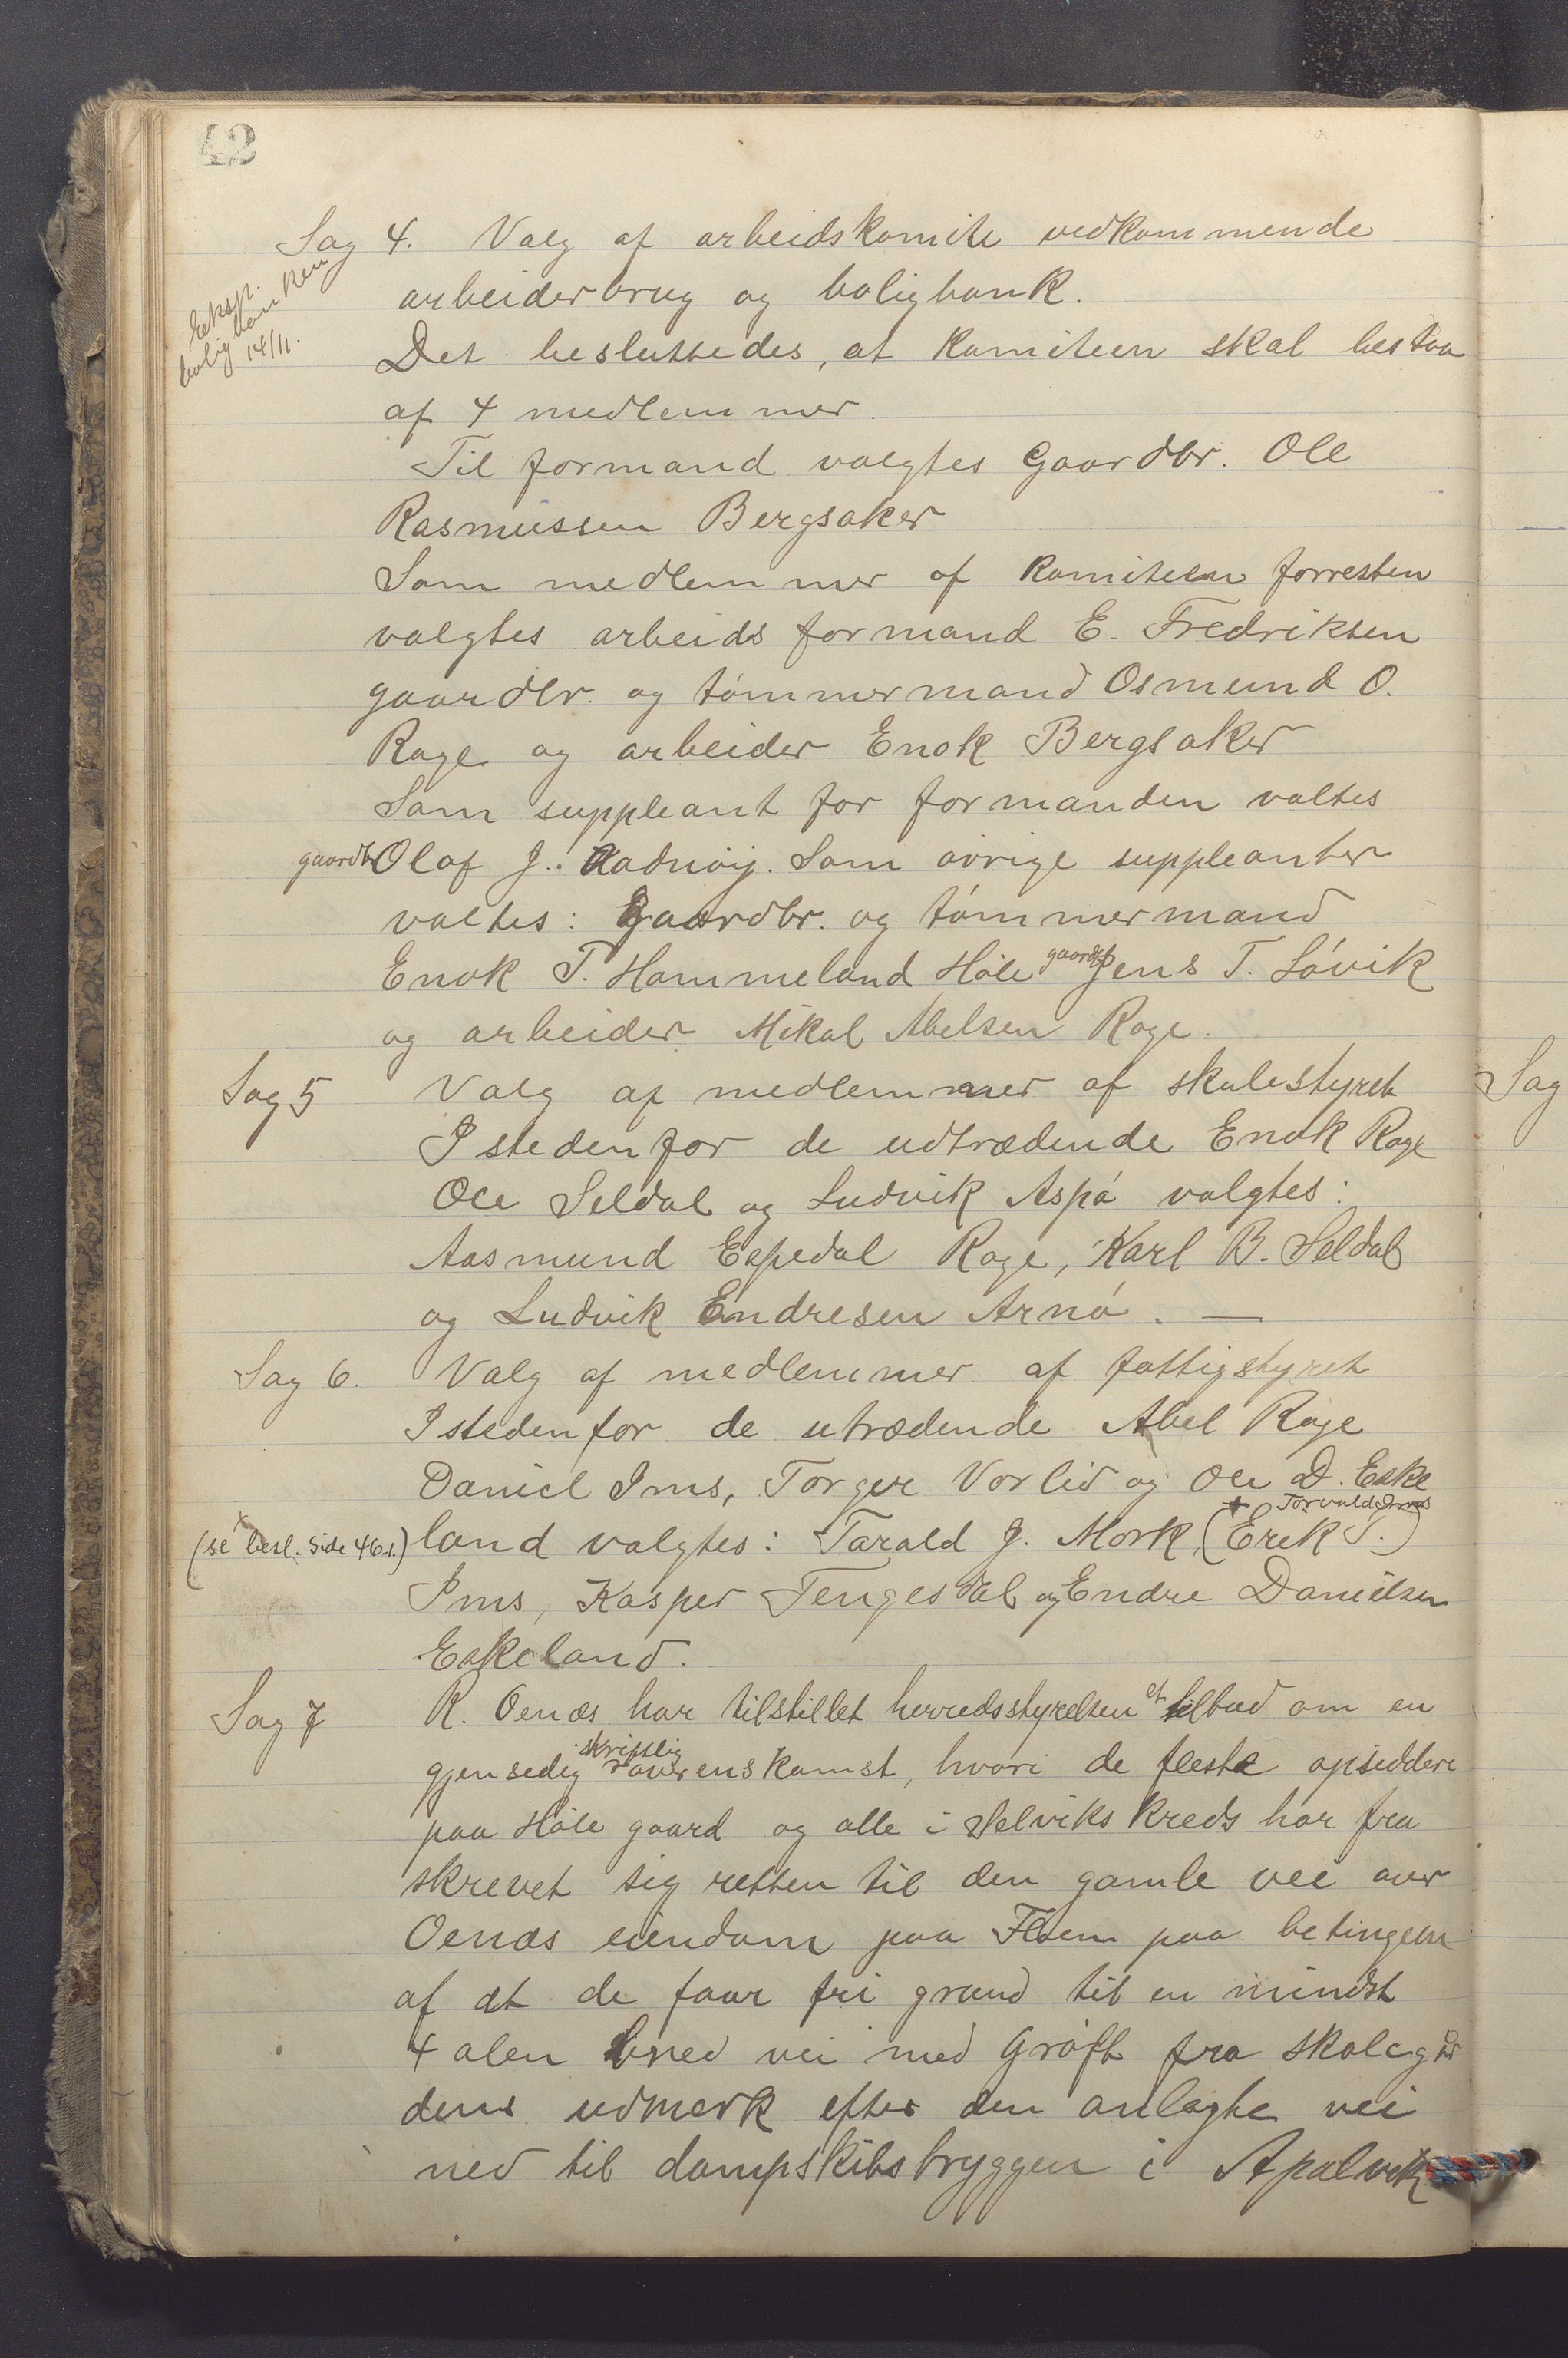 42
Sag 4. Valg af arbeidskomite vedkommende
Eksp.
boligbanken
14/11.
arbeiderbrug og boligbank.
Det besluttedes, at komiteen skal bestaa
af 4 medlemmer.
Til formand valgtes Gaardbr. Ole
Rasmussen Bergsaker
Som medlemmer af komiteen forresten
valgtes arbeidsformand E. Fredriksen
gaardbr. og tömmermand Osmund O.
Rage og arbeider Enok Bergsaker
Som suppleant for formanden valtes
gaardb Olaf J. Aadnöij. Som övrige suppleanter
valtes: Gaardbr. og tömmermand
Enok T. Hommeland Höle gaardb Jens T. Lövik
og arbeider Mikal Abelsen Rage.
Sag 5 Valg af medlemmer af skolestyret
I stedenfor de udtrædende Enok Rage
Ole Seldal og Ludvik Aspö valgtes:
Aasmund Espedal Rage, Karl B. Seldal
og Ludvik Endresen Arnö. —
Sag 6. Valg af medlemmer af fattigstyret
I stedenfor de utrædende Abel Rage
Daniel Ims, Torger Vorlid og Ole D. Eske
Torvald Ims
(se besl. side 46.) land valgtes: Tarald J. Mork, (Erik T.)
Ims, Kasper Tengesdal og Endre Danielsen
Eskeland.
Sag 7 R. Oenæs har tilstillet herredsstyrelsen et tilbud om en
gjensedig skriftlig overenskomst, hvori de fleste opsiddere
paa Höle gaard og alle i Selviks kreds har fra
skrevet sig retten til den gamle vei over
Oenæs eiendom paa Floen paa betingelse
af at de faar fri grund til en mindst
4 alen bred vei med Gröft fra skolegår
dens udmerk efter den anlagte vei
ned til dampskibsbryggen i Apalvik
Sag